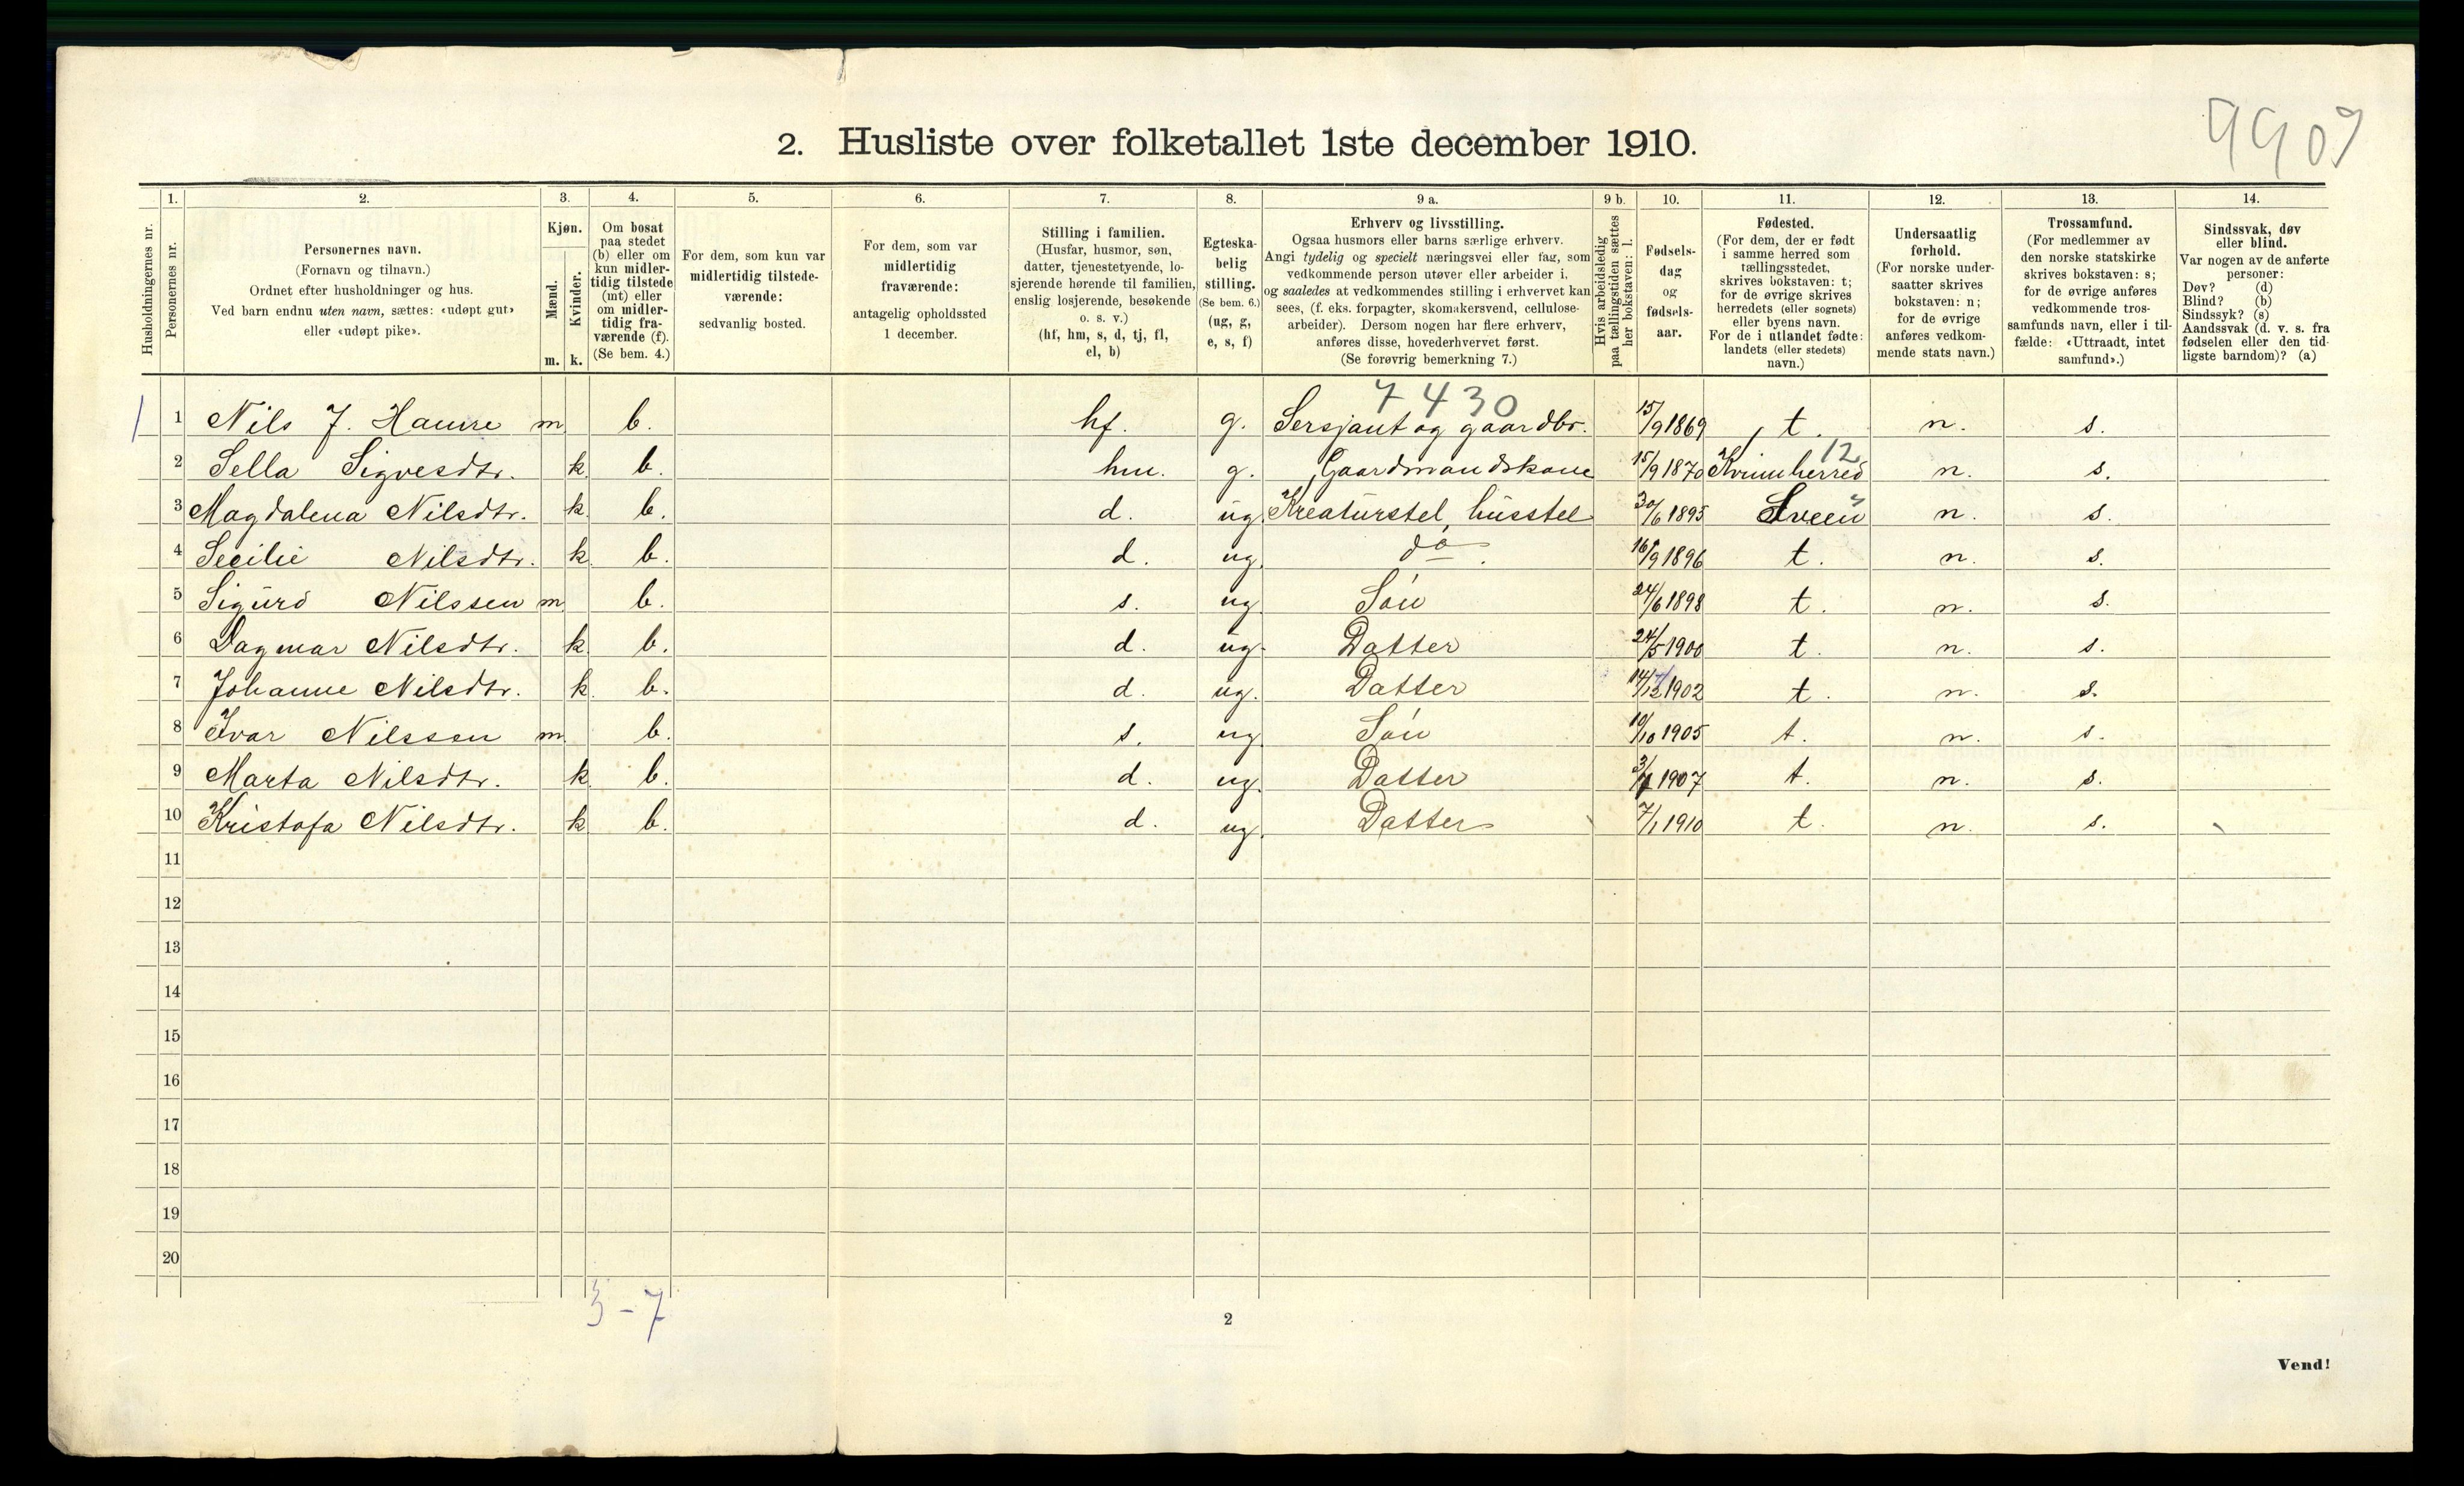 9909
2. Husliste over folketallet 1ste december 1910.
Husholdningernes nr.
1. Personernes nr.
2.
Personernes navn.
(Fornavn og tilnavn.)
Ordnet efter husholdninger og hus.
Ved barn endnu uten navn, sættes: «udøpt gut»
eller «udøpt pike».
3.
Kjøn.
Mænd. Kvinder.
m. k.
4.
Om bosat
paa stedet
(b) eller om
kun midler-
tidig tilstede
(mt) eller
om midler-
tidig fra-
værende (f).
(Se bem. 4.)
5.
For dem, som kun var
midlertidig tilstede-
værende:
sedvanlig bosted.
6.
For dem, som var
midlertidig
fraværende:
antagelig opholdssted
1 december.
7.
Stilling i familien.
(Husfar, husmor, søn,
datter, tjenestetyende, lo-
sjerende hørende til familien,
enslig losjerende, besøkende
o. s. v.)
(hf, hm, s, d, tj, fl,
el, b)
8.
Egteska-
belig
stilling.
(Se bem. 6.)
(ug, g,
e, s, f)
9 a.
Erhverv og livsstilling.
Ogsaa husmors eller barns særlige erhverv.
Angi tydelig og specielt næringsvei eller fag, som
vedkommende person utøver eller arbeider i,
og saaledes at vedkommendes stilling i erhvervet kan
sees, (f. eks. forpagter, skomakersvend, cellulose-
arbeider). Dersom nogen har flere erhverv,
anføres disse, hovederhvervet først.
(Se forøvrig bemerkning 7.)
9 b.
Hvis arbeidsledig
paa tællingstiden sættes
her bokstaven: l.
10.
Fødsels-
dag
og
fødsels-
aar.
11.
Fødested.
(For dem, der er født
i samme herred som
tællingsstedet,
skrives bokstaven: t;
for de øvrige skrives
herredets (eller sognets)
eller byens navn.
For de i utlandet fødte:
landets (eller stedets)
navn.)
12.
Undersaatlig
forhold.
(For norske under-
saatter skrives
bokstaven: n;
for de øvrige
anføres vedkom-
mende stats navn.)
13.
Trossamfund.
(For medlemmer av
den norske statskirke
skrives bokstaven: s;
for de øvrige anføres
vedkommende tros-
samfunds navn, eller i til-
fælde: «Uttraadt, intet
samfund».)
14.
Sindssvak, døv
eller blind.
Var nogen av de anførte
personer:
Døv? (d)
Blind? (b)
Sindssyk? (s)
Aandssvak (d. v. s. fra
fødselen eller den tid-
ligste barndom)? (a)
7430
1 1 Nils J. Hamre m b. hf. g. Sersjant og gaardbr. 15/9 1869 t. n. s.
12
2 Sella Sigvesdtr. k b. hm. g. Gaardmandskone 15/9 1870 Kvinnherred n. s.
3 Magdalena Nilsdtr. k b. d. ug. Kreaturstel, husstel 30/6 1895 Sveen n. s.
4 Secilie Nilsdtr. k b. d. ug. do. 16/9 1896 t. n. s.
5 Sigurd Nilssen m b. s. ug. Søn 24/6 1898 t. n. s.
6 Dagmar Nilsdtr. k b. d. ug. Datter 24/5 1900 t. n. s.
7 Johanne Nilsdtr. k. b. d. ug. Datter 14/12 1902 t. n. s.
8 Ivar Nilssen m b. s. ug. Søn 10/10 1905 t. n. s.
9 Marta Nilsdtr. k b. d. ug. Datter 1907 t. n. s.
10 Kristofa Nilsdtr. k b. d. ug. Datter 7/1 1910 t. n. s.
11
12
13
14
15
16
17
18
19
20
3-7
2
Vend!